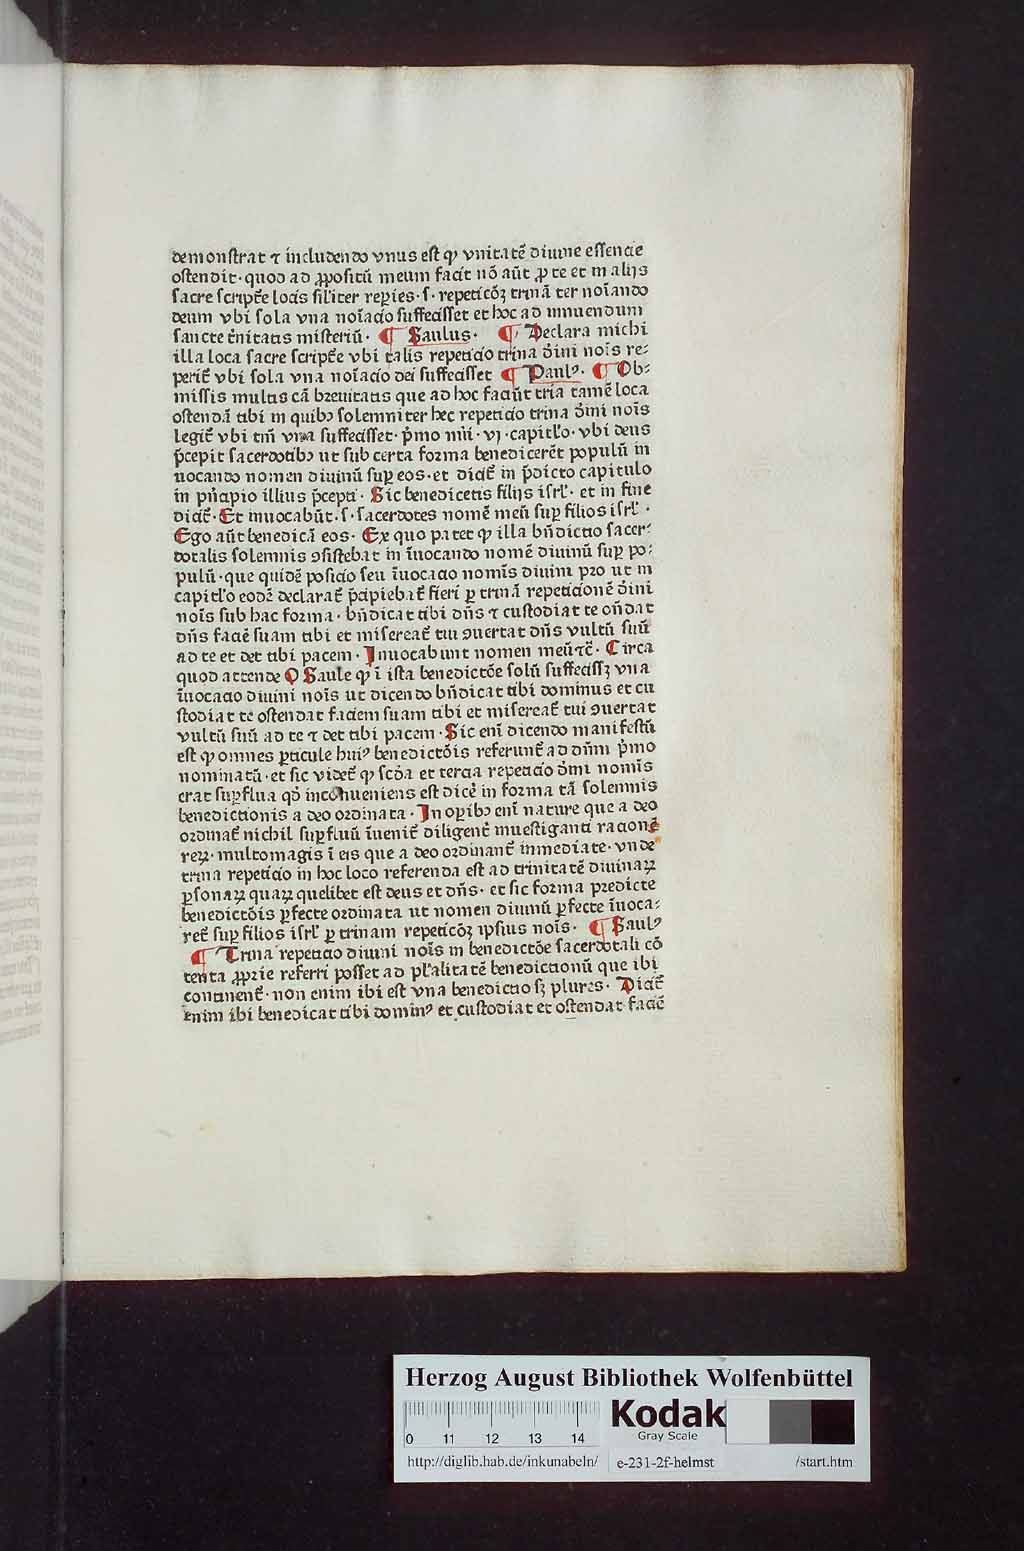 demonstrat ⁊ includendo vnus est ꝙ vnitatē diuine essencie
ostendit · quod ad ꝓpositū meum facit nō aūt ꝓ te et in alijs
sacre scriptē locis siľiter reperies · s · repeticōꝫ trinā ter noīando
deum vbi sola vna noīacio suffecisset et hoc ad innuendum
sancte trinitatis misteriū · ¶ Saulus · ¶ Declara michi
illa loca sacre scriptē vbi talis repeticio trina diuini nois re⸗
perit̄ vbi sola vna noīacio dei suffecisset ¶ Paulꝰ · ¶ Ob⸗
missis multis cā breuitatis que ad hoc faciūt tria tamē loca
ostendā tibi in quibꝰ solemniter hec repeticio trina dīni nois
legit̄ vbi tm̄ vna suffecisset · pͥmo nūi · vj · capitľo · vbi deus
p̄cepit sacerdotibꝰ ut sub certa forma benedicerēt populū in
uocando nomen diuinū suꝑ eos · et dicit̄ in p̄dicto capitulo
in pͥncipio illius p̄cepti · Sic benedicetis filijs isrľ · et in fine
dicit̄ · Et inuocabūt · s · sacerdotes nomē meū suꝑ filios isrľ ·
Ego aūt benedicā eos · Ex quo patet ꝙ illa bn̄dictio sacer⸗
dotalis solemnis ꝯsistebat in īuocando nomē diuinū suꝑ po⸗
pulū · que quidē posicio seu īuocacio nominis diuini pro ut in
capitľo eodē declarat̄ p̄cipiebat̄ fieri ꝑ trinā repeticionē dīni
nois sub hac forma · bn̄dicat tibi dn̄s ⁊ custodiat te on̄dat
dn̄s faciē suam tibi et misereat̄ tui ꝯuertat dn̄s vultū suū
ad te et det tibi pacem · Inuocabunt nomen meū ⁊c̄ · Circa
quod attende O Saule ꝙ ī ista benedictōe solū suffecissꝫ vna
īuocacio diuini nois ut dicendo bn̄dicat tibi dominus et cu
stodiat te ostendat faciem suam tibi et misereat̄ tui ꝯuertat
vultū suū ad te ⁊ det tibi pacem · Sic enī dicendo manifestū
est ꝙ omnes ꝑticule huiꝰ benedictōis referunt̄ ad dn̄m pͥmo
nominatū · et sic videt̄ ꝙ scďa et tercia repeticio dīni nominis
erat suꝑflua qď inconueniens est dicere in forma tā solemnis
benedictionis a deo ordinata · In oꝑibꝰ enī nature que a deo
ordinat̄ nichil suꝑfluū īuenit̄ diligent̄ inuestiganti racionē
reꝝ · multomagis ī eis que a deo ordinant̄ inmediate · vnde
trina repeticio in hoc loco referenda est ad trinitatē diuinaꝝ
ꝑsonaꝝ quaꝝ quelibet est deus et dn̄s · et sic forma predicte
benedictōis ꝑfecte ordinata ut nomen diuinū ꝑfecte īuoca⸗
ret̄ suꝑ filios isrľ ꝑ trinam repeticōꝫ ipsius nois · ¶ Saulꝰ
¶ Trina repeticio diuini nois in benedictōe sacerdotali cō
tenta ꝓprie referri posset ad pľalitatē benedictionū que ibi
continent̄ · non enim ibi est vna benedictio sꝫ plures · Dicit̄
enim ibi benedicat tibi dominꝰ et custodiat et ostendat faciē
Herzog August Bibliothek Wolfenbüttel
0 11 12 13 14
Kodak
Gray Scale
http://diglib.hab.de/inkunabeln/ e-231-2f-helmst /start.htm